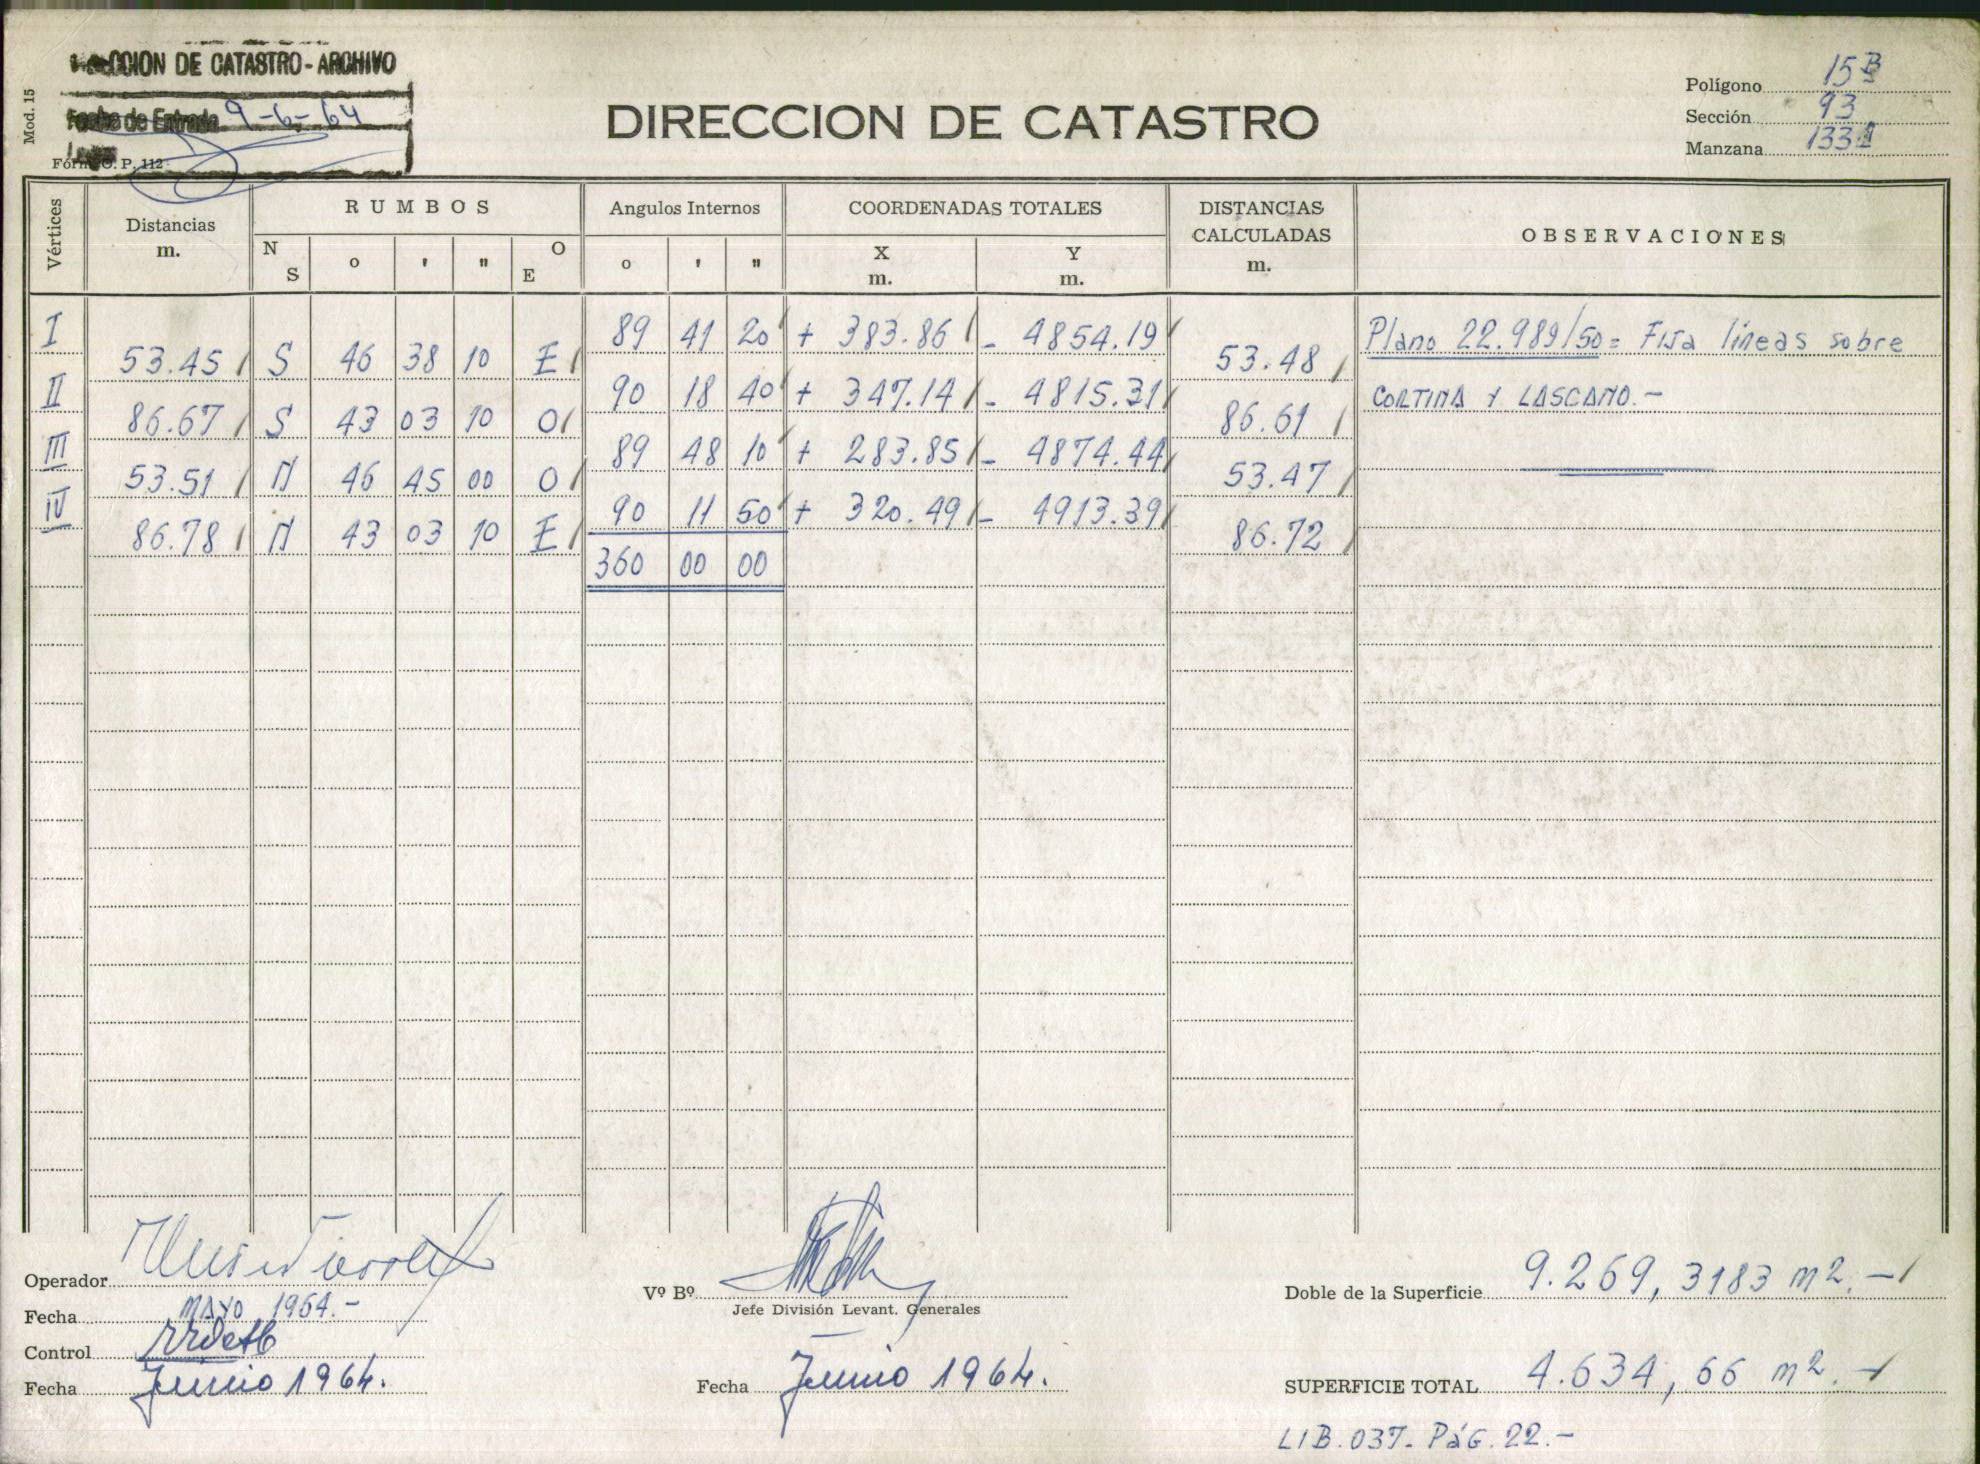 CCION DE CATASTRO - ARCHIVO
Fecha de Entrada 9-6-64
Mod. 15
Fórm. O. P. 112
DIRECCION DE CATASTRO
Polígono 15B
Sección 93
Manzana 133
Vértices
Distancias m.
RUMBOS
N S ° ' " O E
Angulos Internos
° ' "
COORDENADAS TOTALES
X m.
Y m.
DISTANCIAS CALCULADAS m.
OBSERVACIONES
I 89 41 20 + 383.86 - 4854.19 Plano 22.989/50 = Fija líneas sobre
53.45 S 46 38 10 E 53.48
II 90 18 40 + 347.14 - 4815.31 CORTINA Y LASCANO.-
86.67 S 43 03 10 O 86.61
III 89 48 10 + 283.85 - 4874.44
53.51 N 46 45 00 O 53.47
IV 90 11 50 + 320.49 - 4913.39
86.78 N 43 03 10 E 86.72
360 00 00
Operador
Fecha MAYO 1964.-
Control
Fecha Junio 1964.
Vº Bº
Jefe División Levant. Generales
Fecha Junio 1964.
Doble de la Superficie 9.269,3183 m2.-
SUPERFICIE TOTAL 4.634,66 m2.-
LIB.037- PÁG.22.-